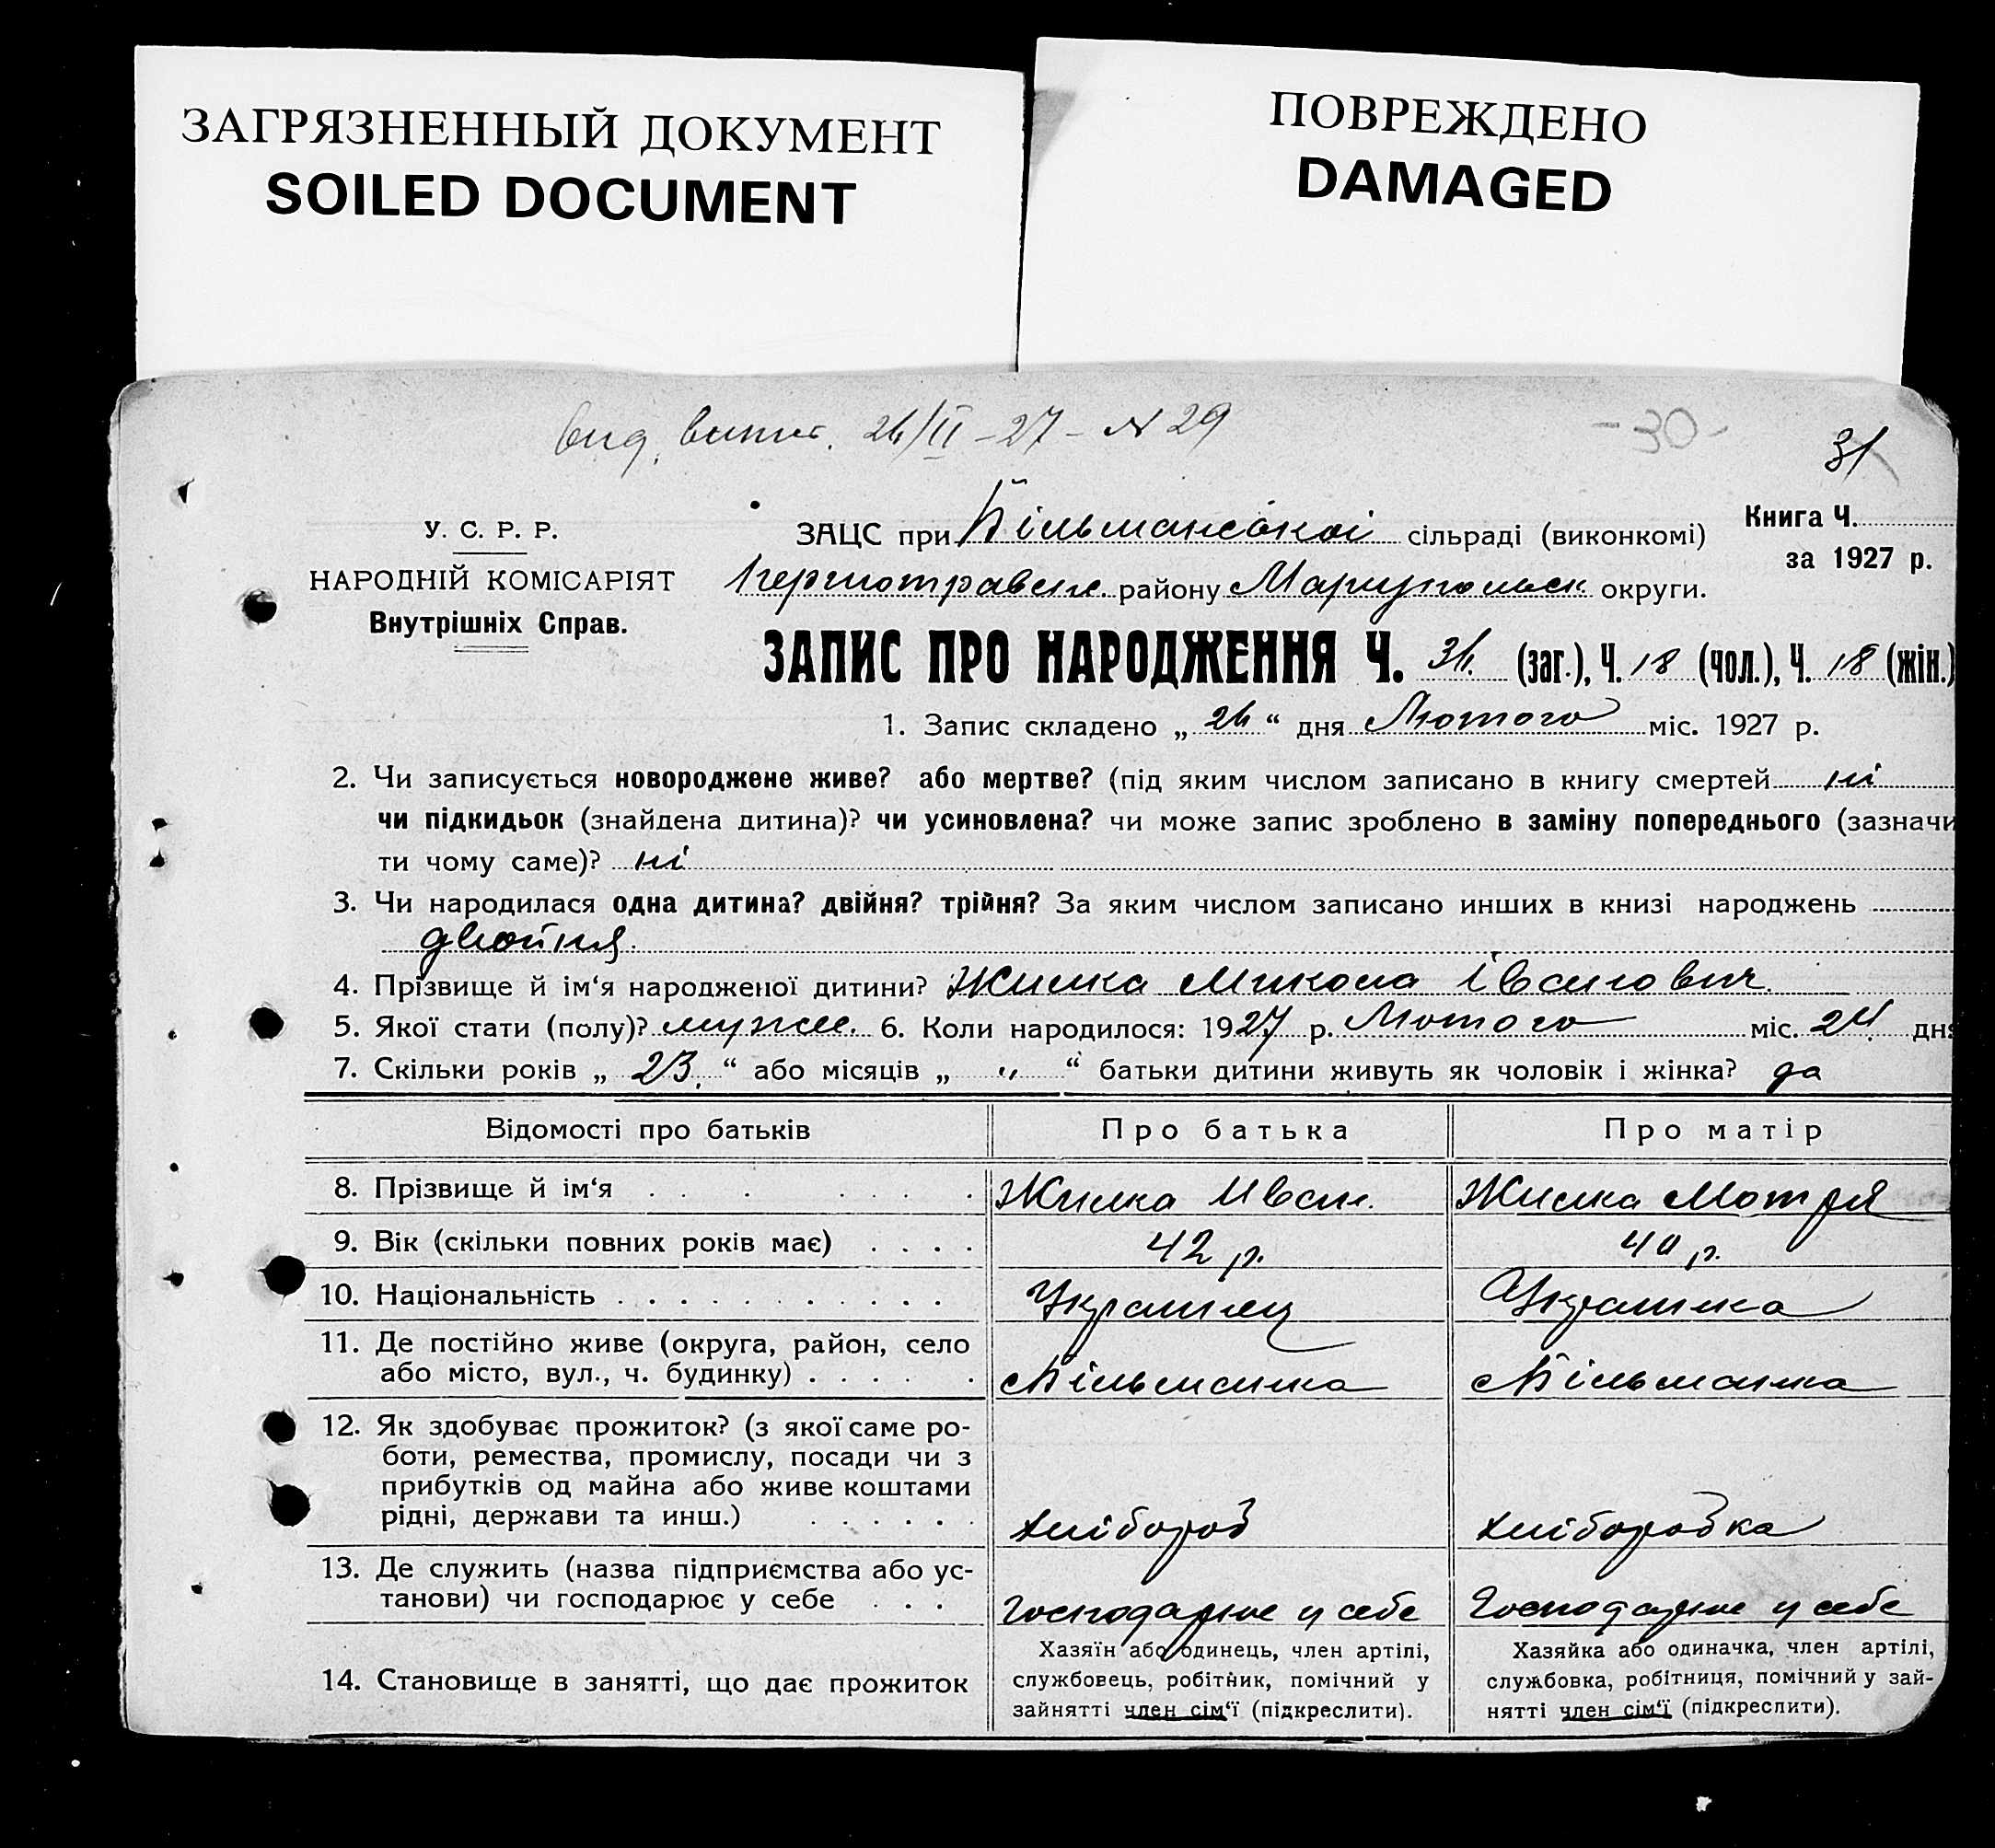 ЗАГРЯЗНЕННЫЙ ДОКУМЕНТ
SOILED DOCUMENT
ПОВРЕЖДЕНО
DAMAGED
вид. випис. 26/II - 27 - N 29
- 30 -
31
У. С. Р. Р.
НАРОДНІЙ КОМІСАРІЯТ
Внутрішніх Справ.
Книга Ч.
за 1927 р.
ЗАЦС при Кільманській сільраді (виконкомі)
Першотравен. району Маріупольск. округи.
ЗАПИС ПРО НАРОДЖЕННЯ Ч. 31. (заг.), Ч. 18 (чол.), Ч. 18 (жін.)
1. Запис складено „ 26 “ дня Лютого міс. 1927 р.
2. Чи записується новороджене живе? або мертве? (під яким числом записано в книгу смертей ні
чи підкидьок (знайдена дитина)? чи усиновлена? чи може запис зроблено в заміну попереднього (зазначи
ти чому саме)? ні
3. Чи народилася одна дитина? двійня? трійня? За яким числом записано инших в книзі народжень
двойня.
4. Прізвище й ім‘я народженої дитини? Жилка Микола Іванович.
5. Якої стати (полу)? мужс. 6. Коли народилося: 1927 р. Лютого міс. 24 дня
7. Скільки років „ 23. “ або місяців „ " “ батьки дитини живуть як чоловік і жінка? да
Відомості про батьків Про батька Про матір
8. Прізвище й ім‘я . . . . . . . Жилка Иван. Жилка Мотря
9. Вік (скільки повних років має) . . . . 42 р. 40 р.
10. Національність . . . . . . . . . . . Украинец Украинка
11. Де постійно живе (округа, район, село
або місто, вул., ч. будинку) . . . . . . Кільманка Кільманка
12. Як здобуває прожиток? (з якої саме ро-
боти, ремества, промислу, посади чи з
прибутків од майна або живе коштами
рідні, держави та инш.) . . . . . . хлібороб хліборобка
13. Де служить (назва підприємства або ус-
танови) чи господарює у себе . . . Господарює у себе Господарює у себе
14. Становище в занятті, що дає прожиток
Хазяїн або одинець, член артілі,
службовець, робітник, помічний у
зайнятті член сім‘ї (підкреслити).
Хазяйка або одиначка, член артілі,
службовка, робітниця, помічний у зай-
нятті член сім‘ї (підкреслити).